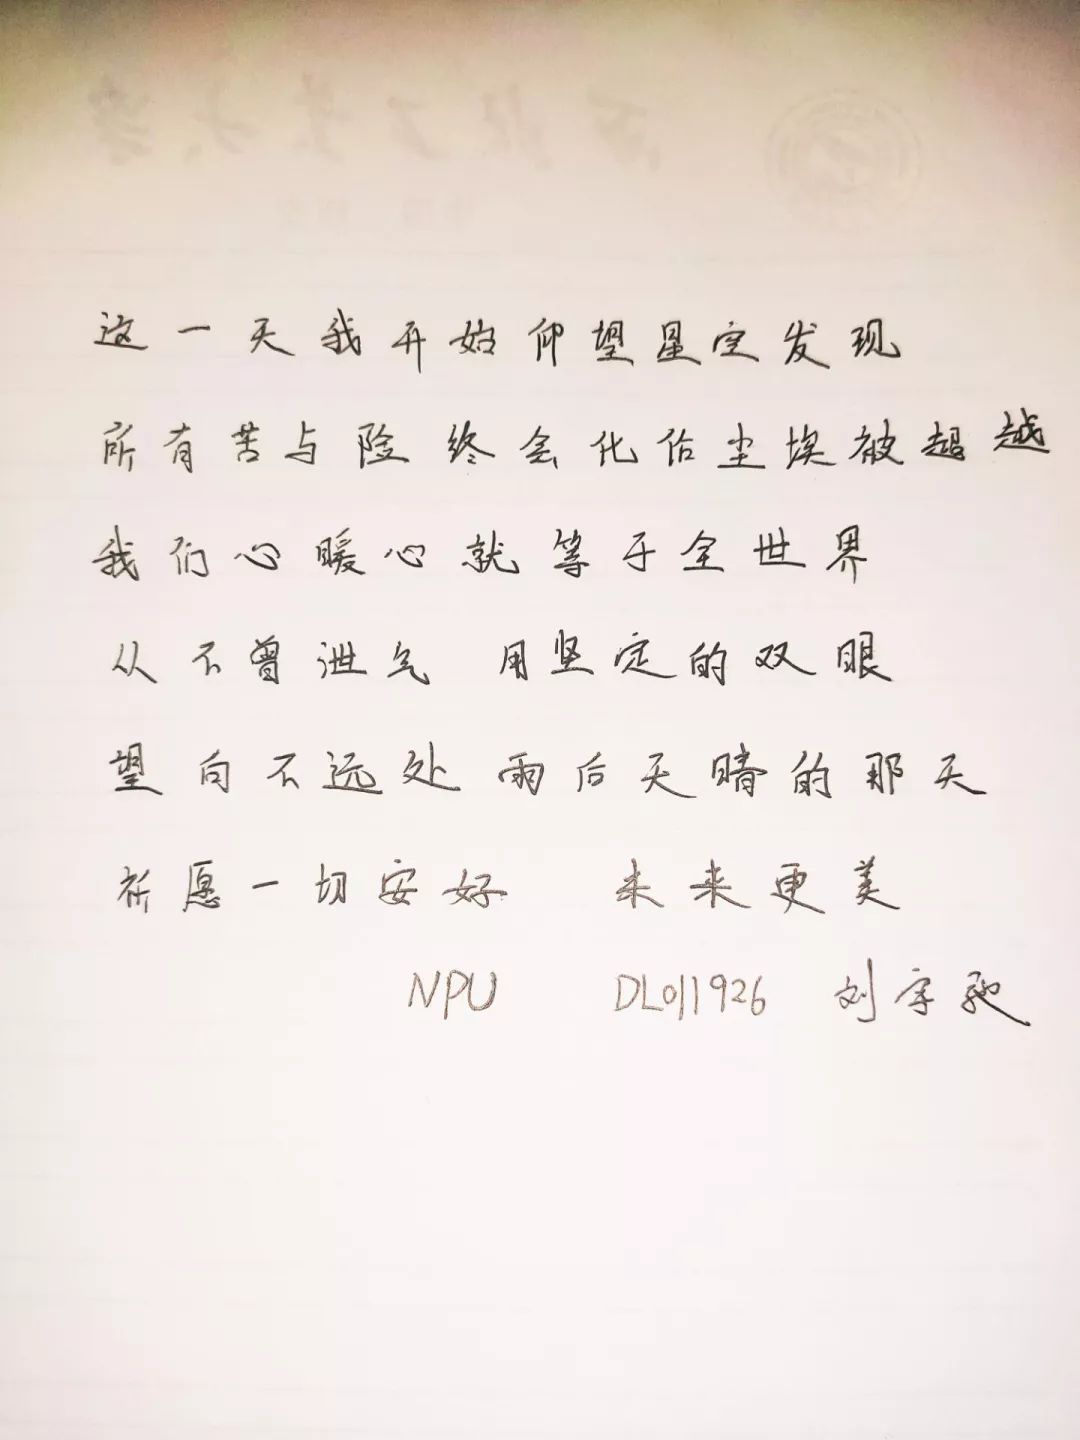 西北工业大学
这一天我开始仰望星空发现
所有苦与险 终会化估尘埃被超越
我们心暖心就等于全世界
从不曾泄气 用坚定的双眼
望向不远处 雨后天晴的那天
祈愿一切安好 未来更美
NPU DL011926 刘宇驰